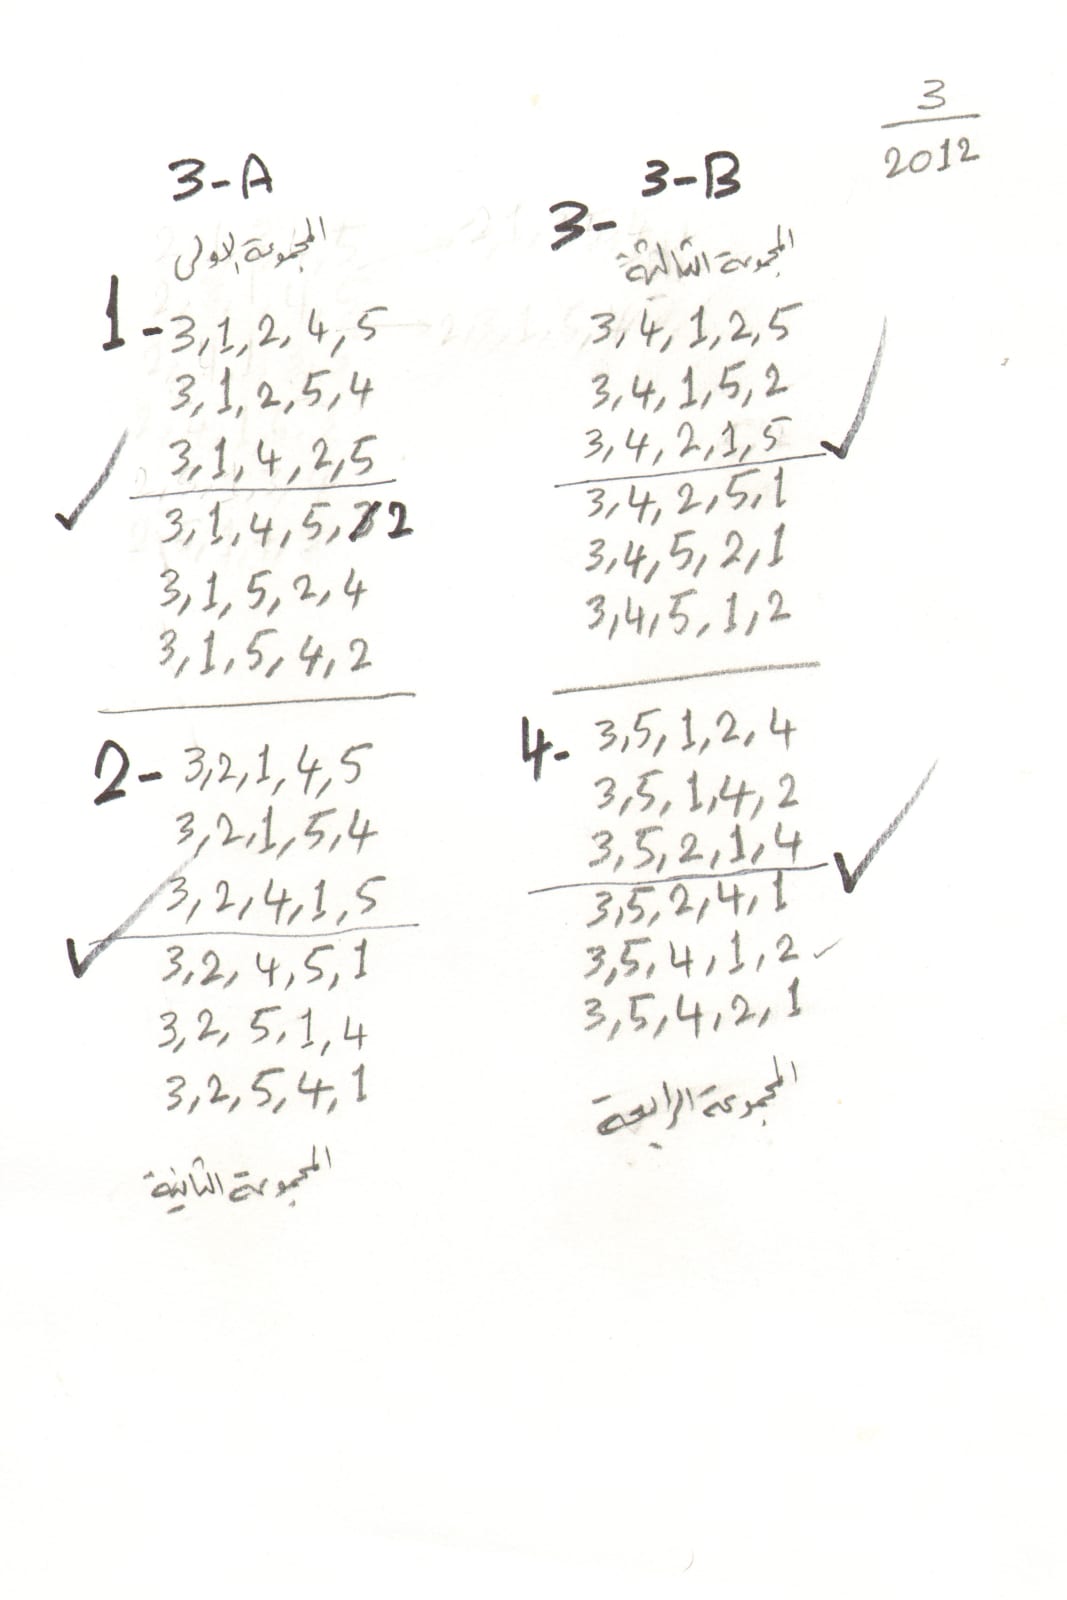 3
2012
3-A
المجموعة الاولى
1- 3,1,2,4,5
3,1,2,5,4
3,1,4,2,5
3,1,4,5,2
3,1,5,2,4
3,1,5,4,2
2- 3,2,1,4,5
3,2,1,5,4
3,2,4,1,5
3,2,4,5,1
3,2,5,1,4
3,2,5,4,1
المجموعة الثانية
3-B
3-
المجموعة الثالثة
3,4,1,2,5
3,4,1,5,2
3,4,2,1,5
3,4,2,5,1
3,4,5,2,1
3,4,5,1,2
4- 3,5,1,2,4
3,5,1,4,2
3,5,2,1,4
3,5,2,4,1
3,5,4,1,2
3,5,4,2,1
المجموعة الرابعة